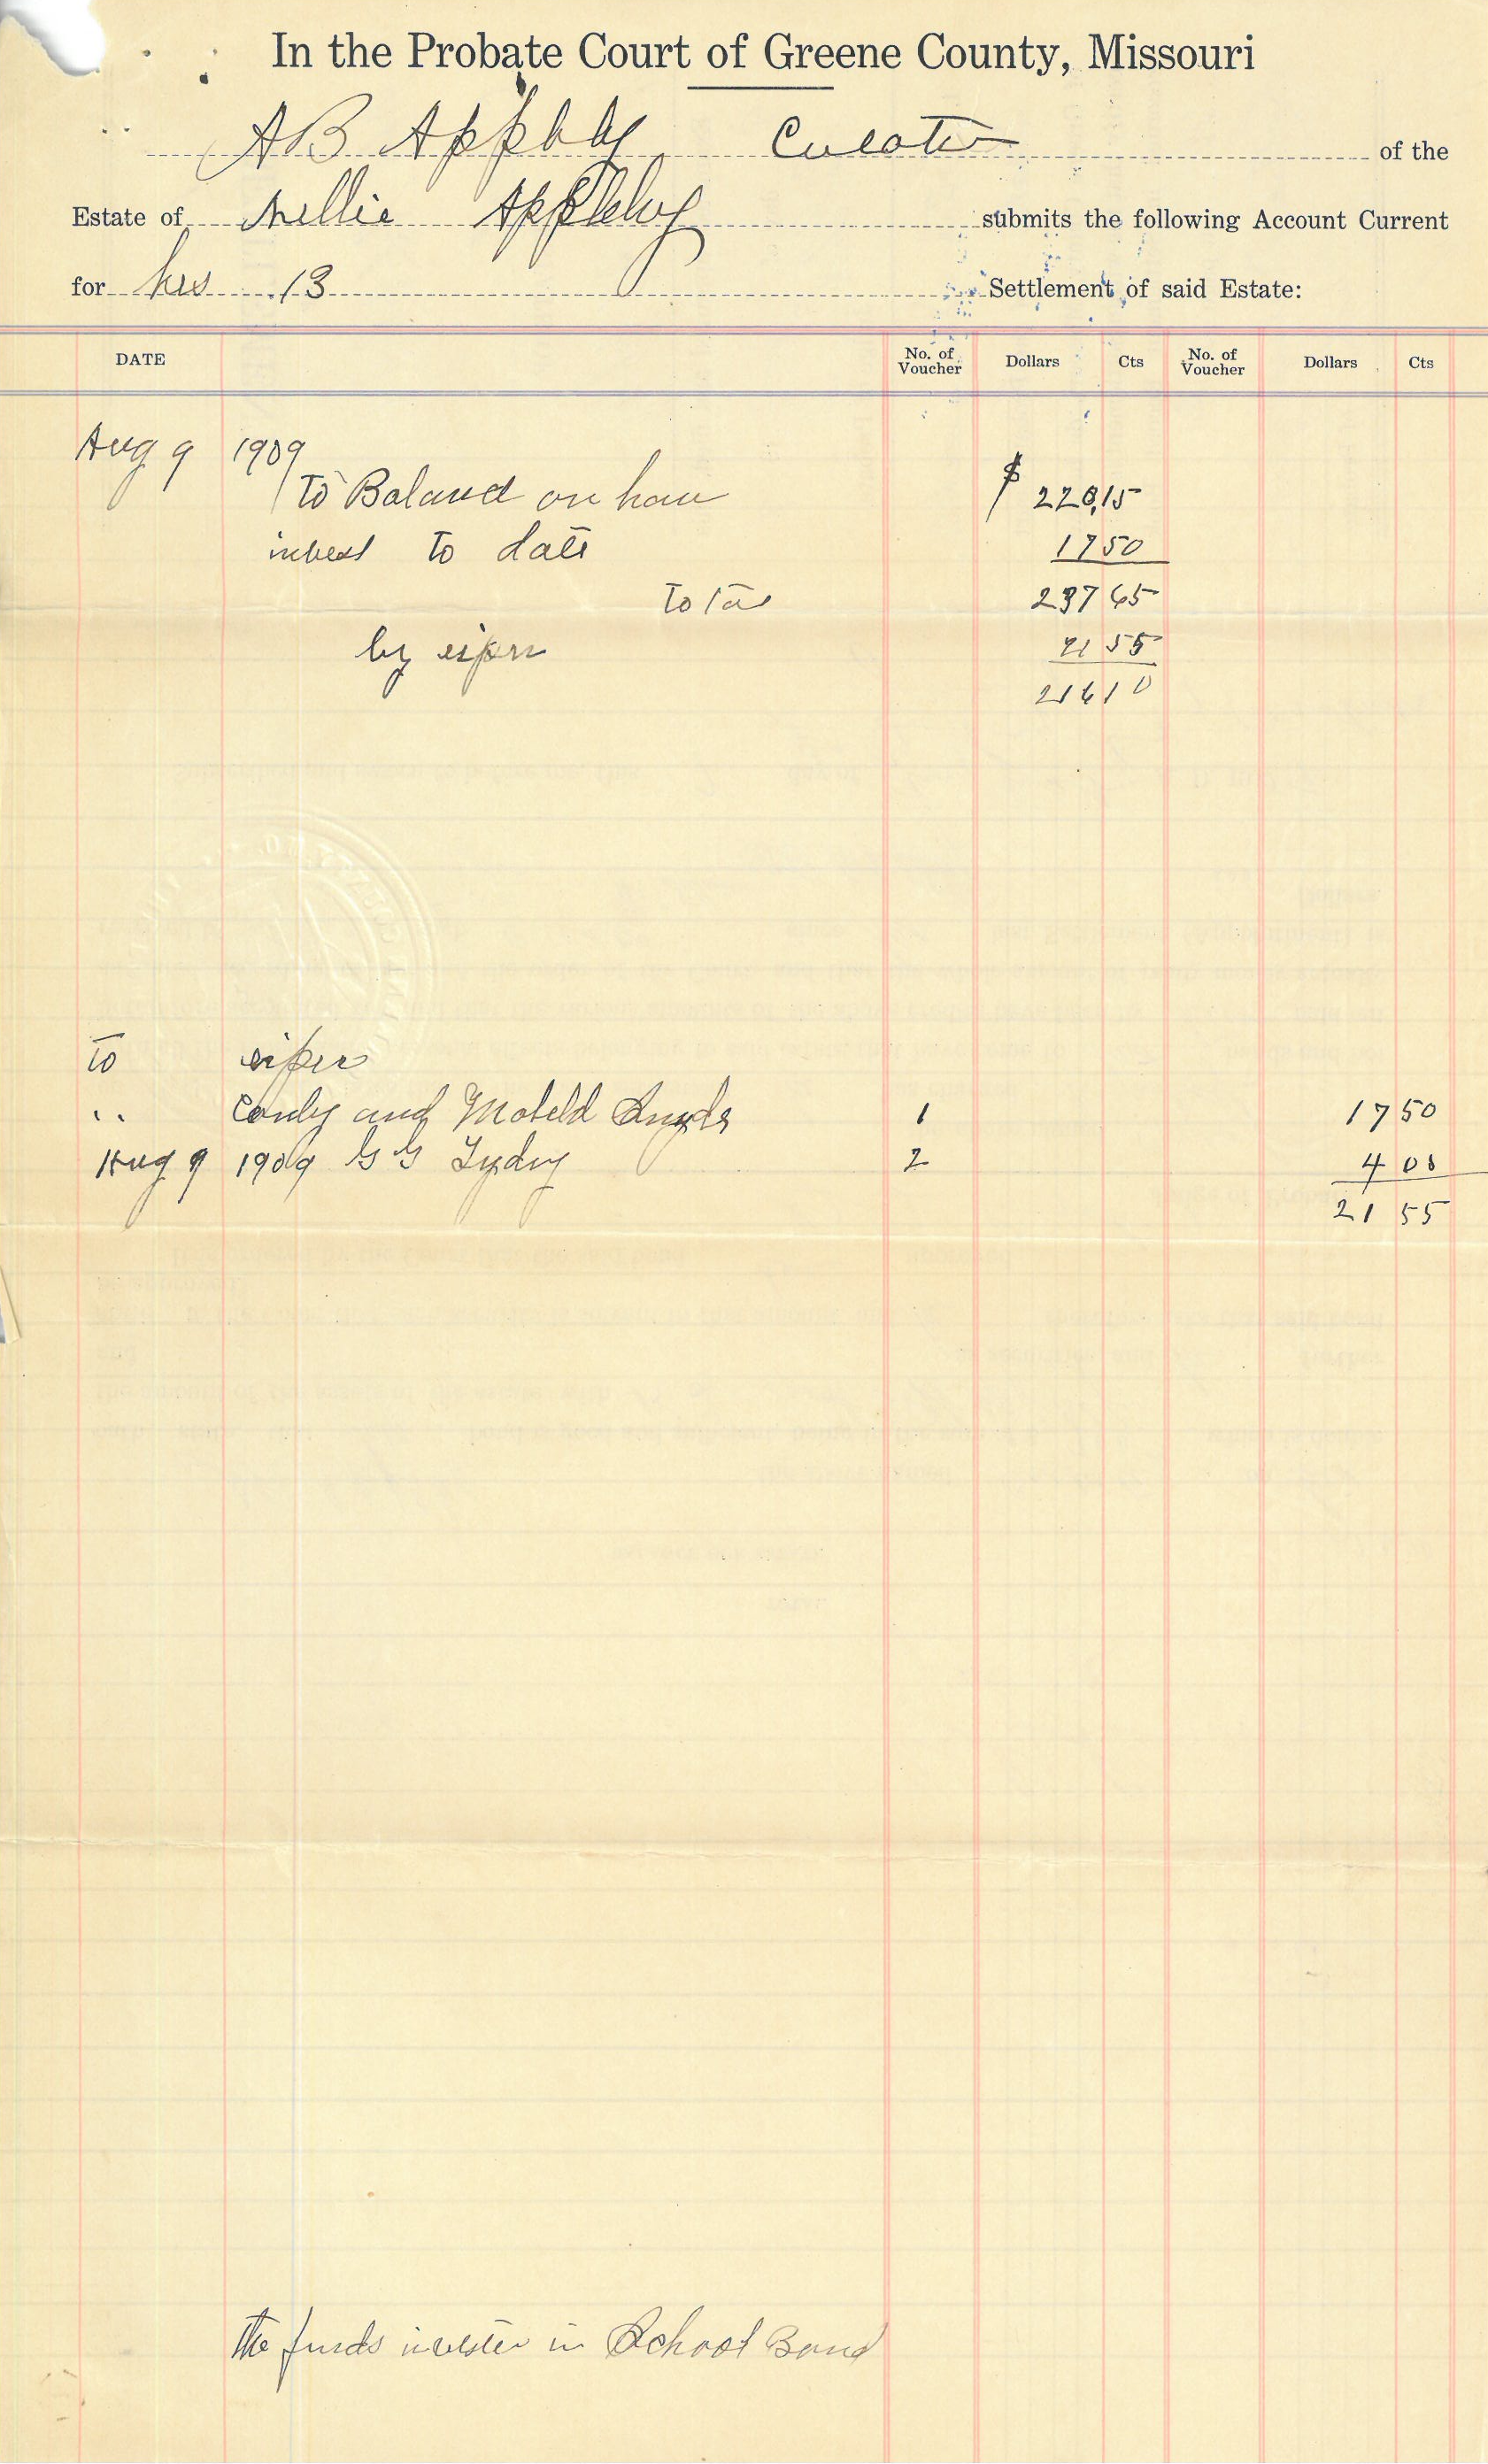 In the Probate Court of Greene County, Missouri
AB Appleby Curator of the
Estate of Nellie Appleby submits the following Account Current
for his 13 Settlement of said Estate:
DATE No. of Voucher Dollars Cts No. of Voucher Dollars Cts
Aug 9 1909
To Baland on han $ 220,15
to date 17 50
Total 237 65
by 21 55
216 10
To
" and 1 17 50
Aug 9 1909 G G 2 4 05
21 55
The funds in School Bond